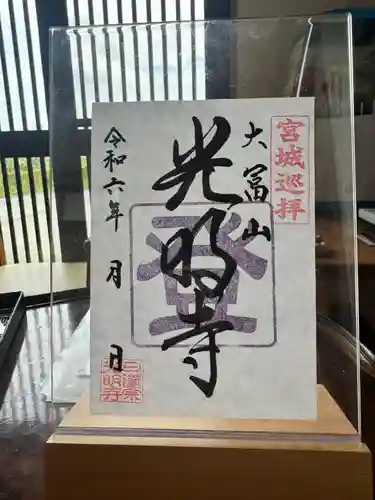 宮城巡拝
大冨山
光明寺
登
令和六年 月 日